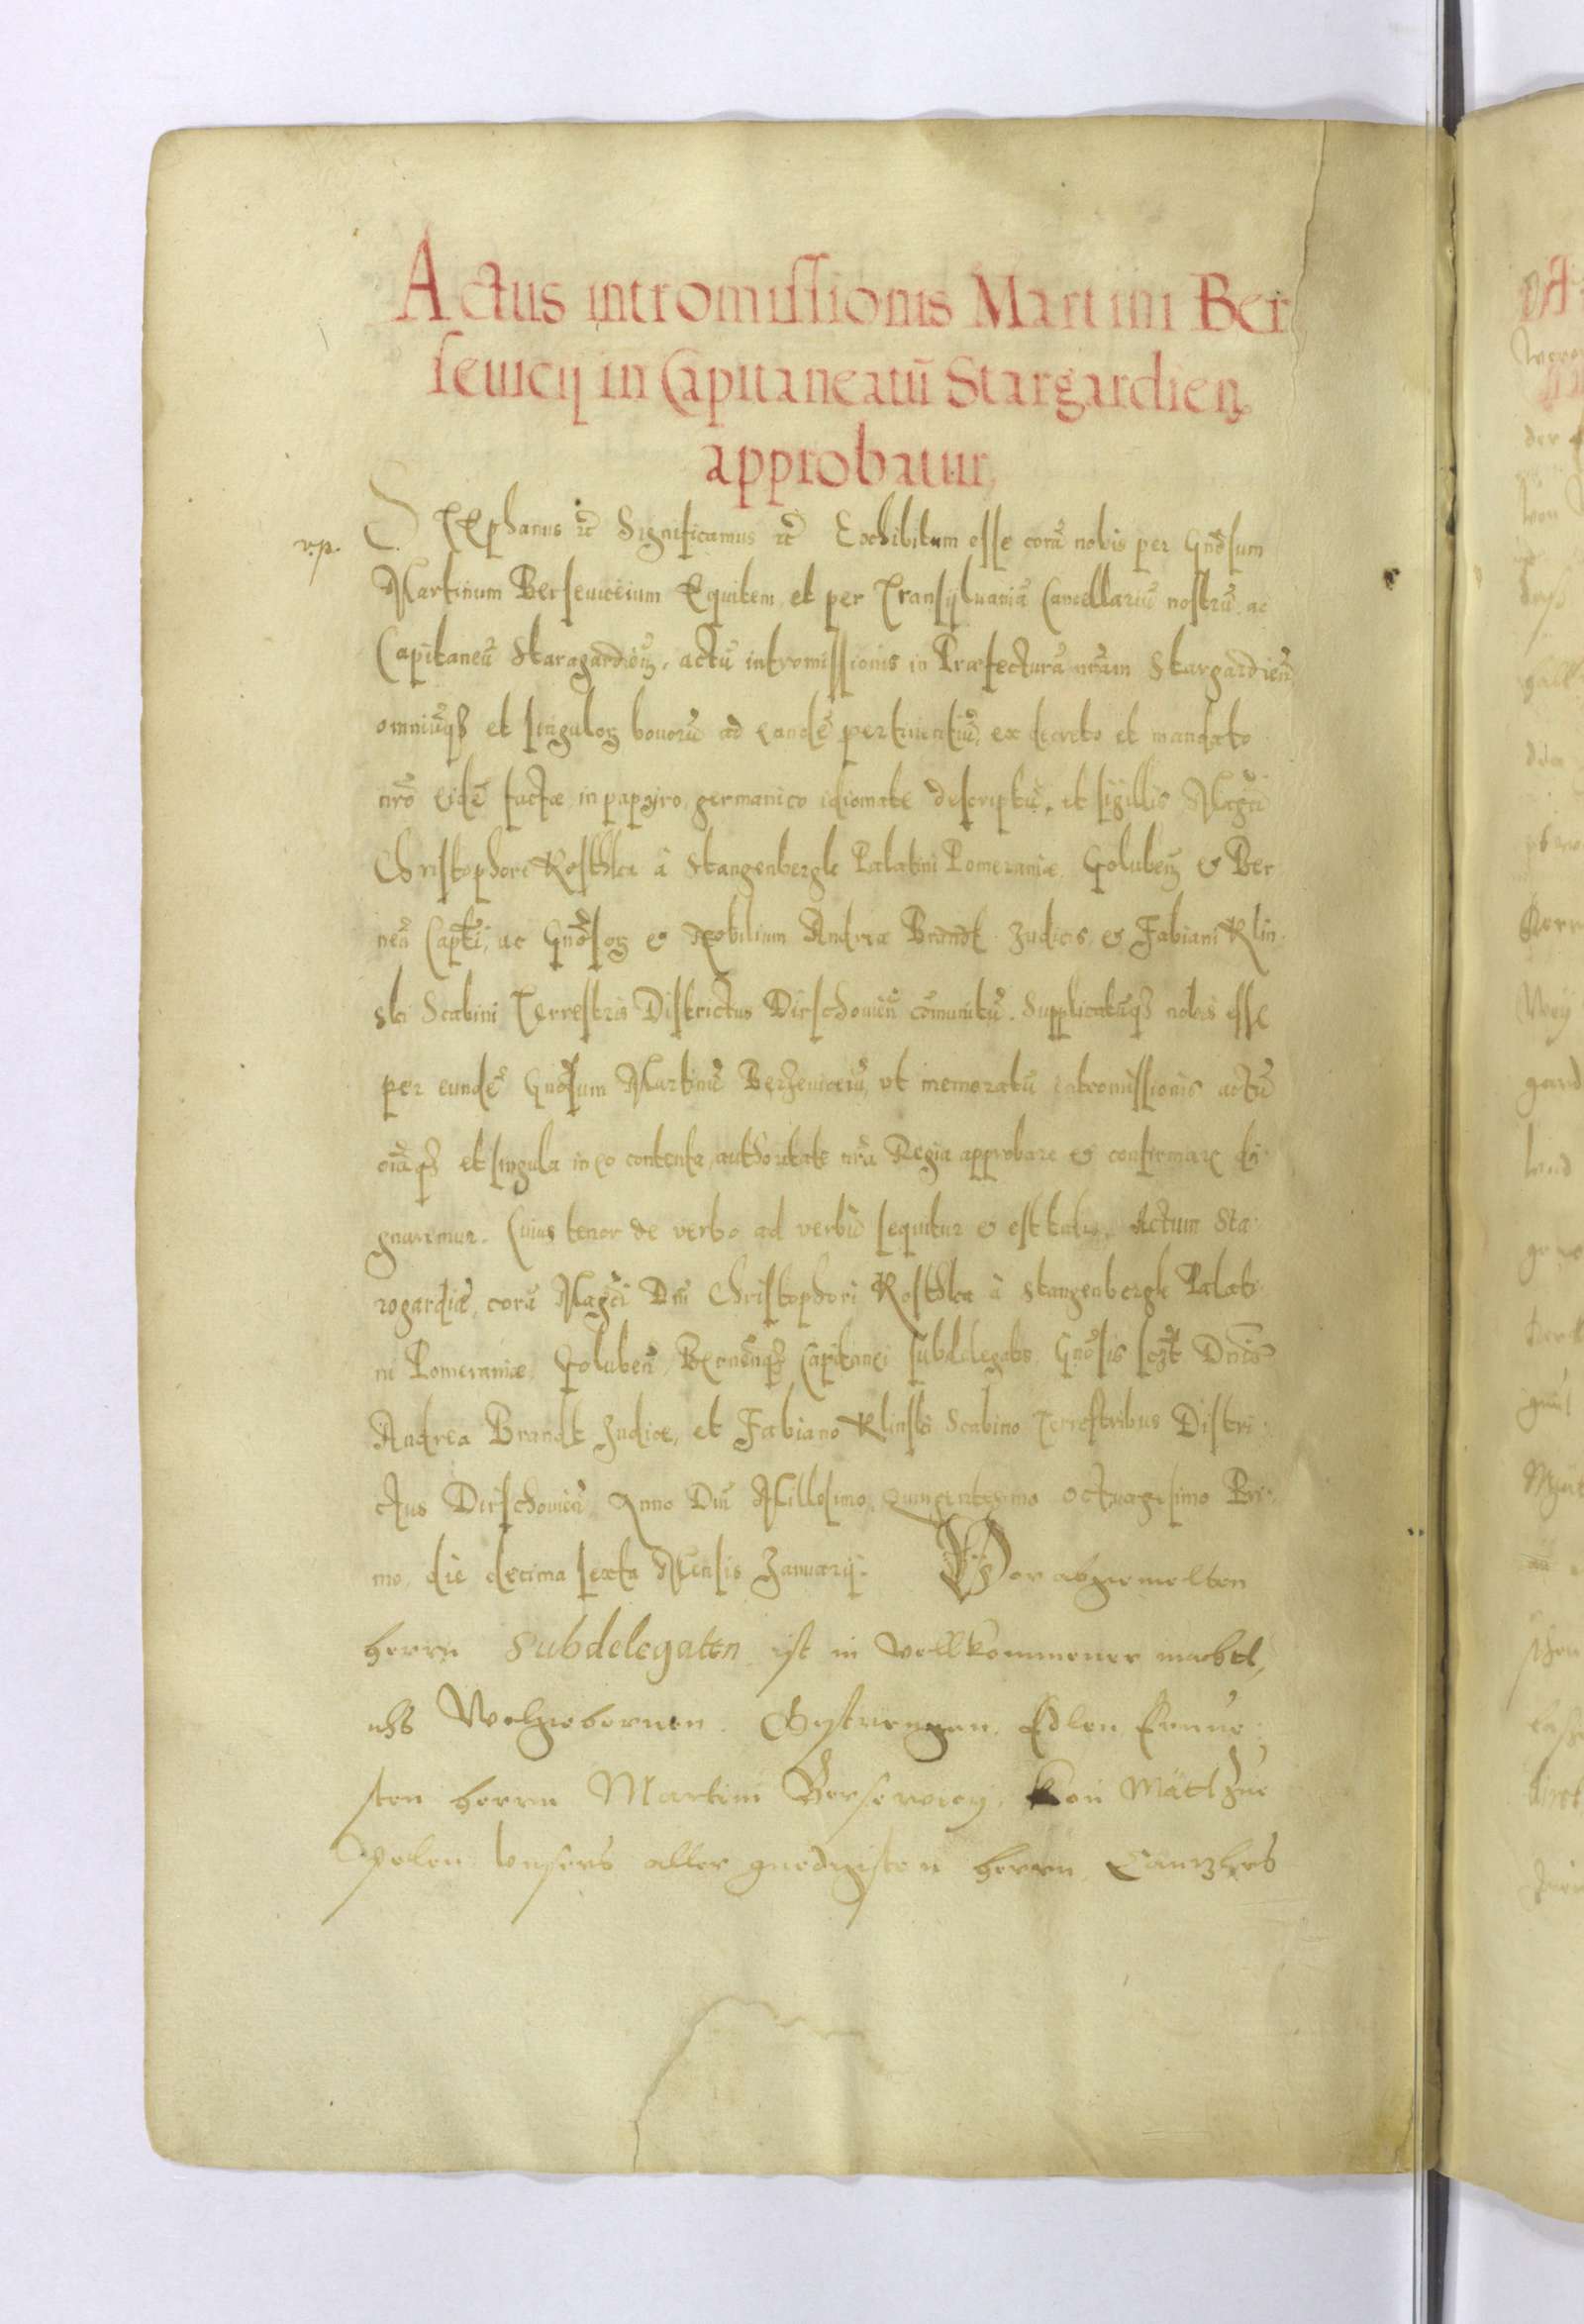 Actus intromissionis Martini Ber
sevicij in Capitaneatũ Stargardieñ
approbatur,
v.p.
STEphanus ꝛc Significamus ꝛc Exhibitum esse corã nobis per Gnõsum
Martinum Berseviceium Equitem et per Transylvaniã Cancellariũ nostrũ ac
Capitaneũ Staragardieñ. actũ intromissionis in Præfecturã nrãm Stargardieñ
omniũqȝ et singuloꝝ bonorũ ad eandẽ pertinentiũ, ex decreto et mandato
nrõ eidẽ factæ, in papyro, germanico idiomate descriptũ, et sigillis Magci
Christophori Kosthka à Stangenbergk Palatini Pomeraniæ, Golubeñ & Ber
neñ Capñi, ac Gnõsoꝝ & Nobilium Andreæ Brandt Judicis, & Fabiani Klin
ski Scabini Terrestris Districtus Dirschovieñ cõmunitũ. Supplicatũqȝ nobis esse
per eundẽ Gnõsum Martinũ Berzeviciũ, vt memoratũ intromissionis actũ
oiãqȝ et singula in eo contenta, authoritate nrã Regia approbare & confirmare di
gnaremur. Cuius tenor de verbo ad verbũ sequitur & est talis. Actum Sta
rogardiæ, corã Magci Dñi Christophori Kosthka à Stangenbergk Palati
ni Pomeraniæ, Golubeñ, Berneñqȝ Capitanei subdelegatis Gnõsis sczt Dñis
Andrea Brandt Judice, et Fabiano Klinski Scabino Terrestribus Distri
ctus Dirschovieñ, Anno Dñi Millesimo, Quingentesimo octuagesimo Pri
mo, die decima sexta Mensis Januarij. Vor abgemelten
herrn Subdelegaten ist in vollkommener macht,
Wolgebornen. Gestrengen, Edlen, Ernve
sten herrn Martini Bersevicy, Kon Maÿtt zue
Polen vnsers aller gnedigsten herrn Cantzlers